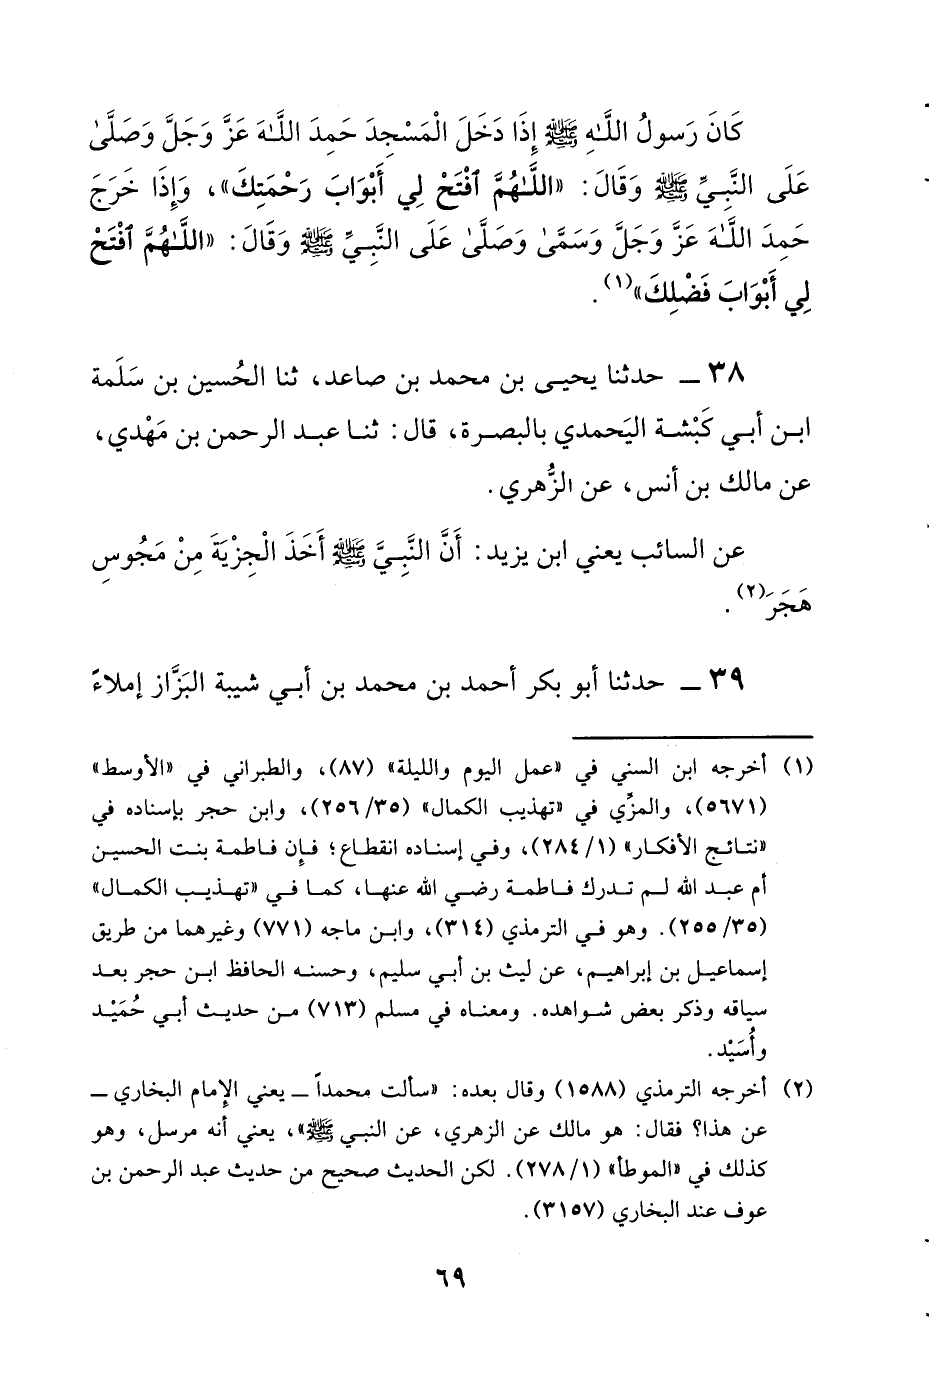 كَانَ رَسولُ اللَّٰهِ ﷺ إِذَا دَخَلَ الْمَسْجِدَ حَمِدَ اللَّٰهَ عَزَّ وَجَلَّ وَصَلَّىٰ
عَلَى النَّبِيِّ ﷺ وَقَالَ: «اللَّٰهُمَّ ٱفْتَحْ لِي أَبْوَابَ رَحْمَتِكَ»، وَإِذَا خَرَجَ
حَمِدَ اللَّٰهَ عَزَّ وَجَلَّ وَسَمَّىٰ وَصَلَّىٰ عَلَى النَّبِيِّ ﷺ وَقَالَ: «اللَّٰهُمَّ ٱفْتَحْ
لِي أَبْوَابَ فَضْلِكَ»(١).
٣٨ ــ حدثنا يحيى بن محمد بن صاعد، ثنا الحُسين بن سَلَمة
ابن أبي كَبْشة اليَحمدي بالبصرة، قال: ثنا عبد الرحمن بن مَهْدي،
عن مالك بن أنس، عن الزُّهري.
عن السائب يعني ابن يزيد: أَنَّ النَّبِيَّ ﷺ أَخَذَ الْجِزْيَةَ مِنْ مَجُوسِ
هَجَرَ(٢).
٣٩ ــ حدثنا أبو بكر أحمد بن محمد بن أبي شيبة البَزَّاز إملاءً
(١) أخرجه ابن السني في «عمل اليوم والليلة» (٨٧)، والطبراني في «الأوسط»
(٥٦٧١)، والمزِّي في «تهذيب الكمال» (٢٥٦/٣٥)، وابن حجر بإسناده في
«نتائج الأفكار» (٢٨٤/١)، وفي إسناده انقطاع؛ فإن فاطمة بنت الحسين
أم عبد الله لم تدرك فاطمة رضي الله عنها، كما في «تهذيب الكمال»
(٢٥٥/٣٥). وهو في الترمذي (٣١٤)، وابن ماجه (٧٧١) وغيرهما من طريق
إسماعيل بن إبراهيم، عن ليث بن أبي سليم، وحسنه الحافظ ابن حجر بعد
سياقه وذكر بعض شواهده. ومعناه في مسلم (٧١٣) من حديث أبي حُمَيْد
وأُسَيْد.
(٢) أخرجه الترمذي (١٥٨٨) وقال بعده: «سألت محمداً ــ يعني الإمام البخاري ــ
عن هذا؟ فقال: هو مالك عن الزهري، عن النبي ﷺ»، يعني أنه مرسل، وهو
كذلك في «الموطأ» (٢٧٨/١). لكن الحديث صحيح من حديث عبد الرحمن بن
عوف عند البخاري (٣١٥٧).
٦٩